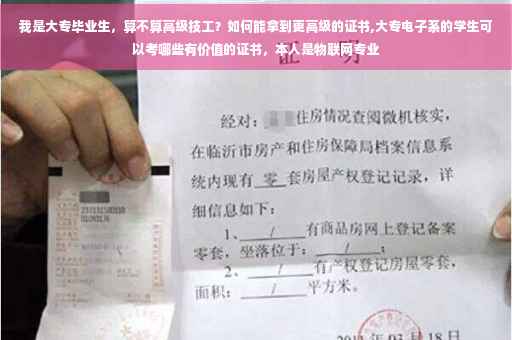 我是大专毕业生，算不算高级技工？如何能拿到更高级的证书,大专电子系的学生可
以考哪些有价值的证书，本人是物联网专业
证 明
经对：住房情况查阅微机核实，
在临沂市房产和住房保障局档案信息系
统内现有 零 套房屋产权登记记录，详
细信息如下：
1、 / 有商品房网上登记备案
零套，坐落位于： / ；
2、 / 有产权登记房屋零套，
面积： / 平方米。
03 月 18 日